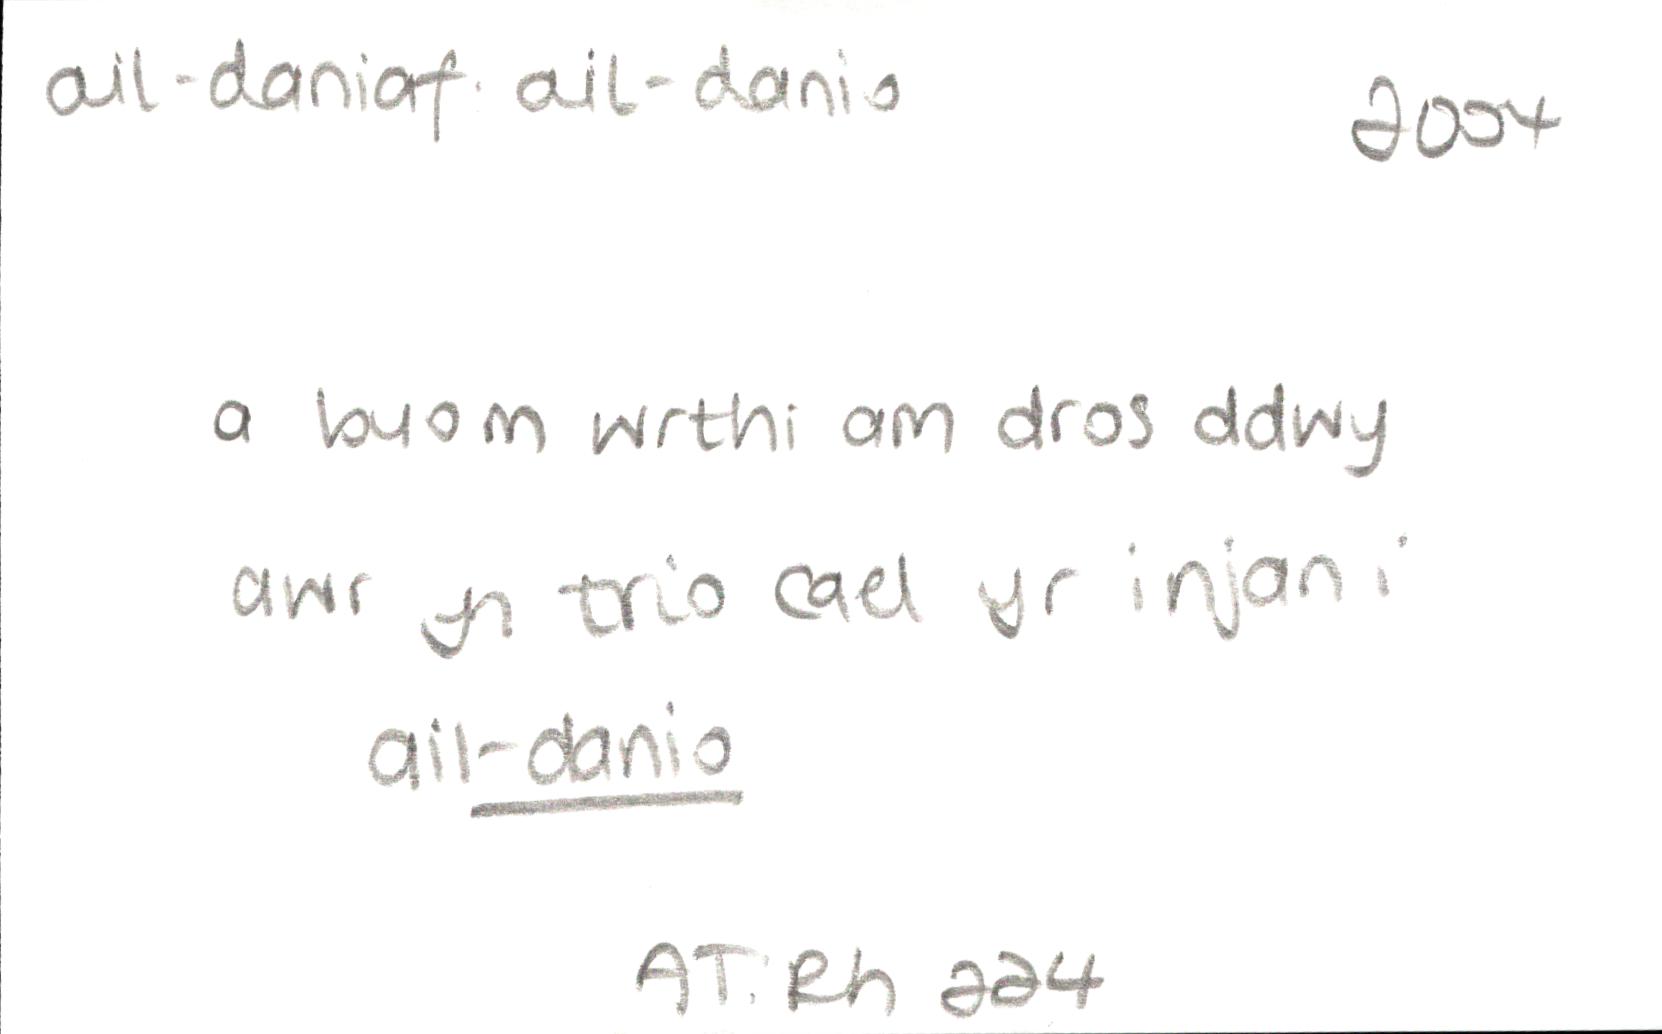 ail-daniaf: ail-danio 2004
a buom wrthi am dros ddwy
awr yn trio cael yr injan i
ail-danio
AT: Rh 224